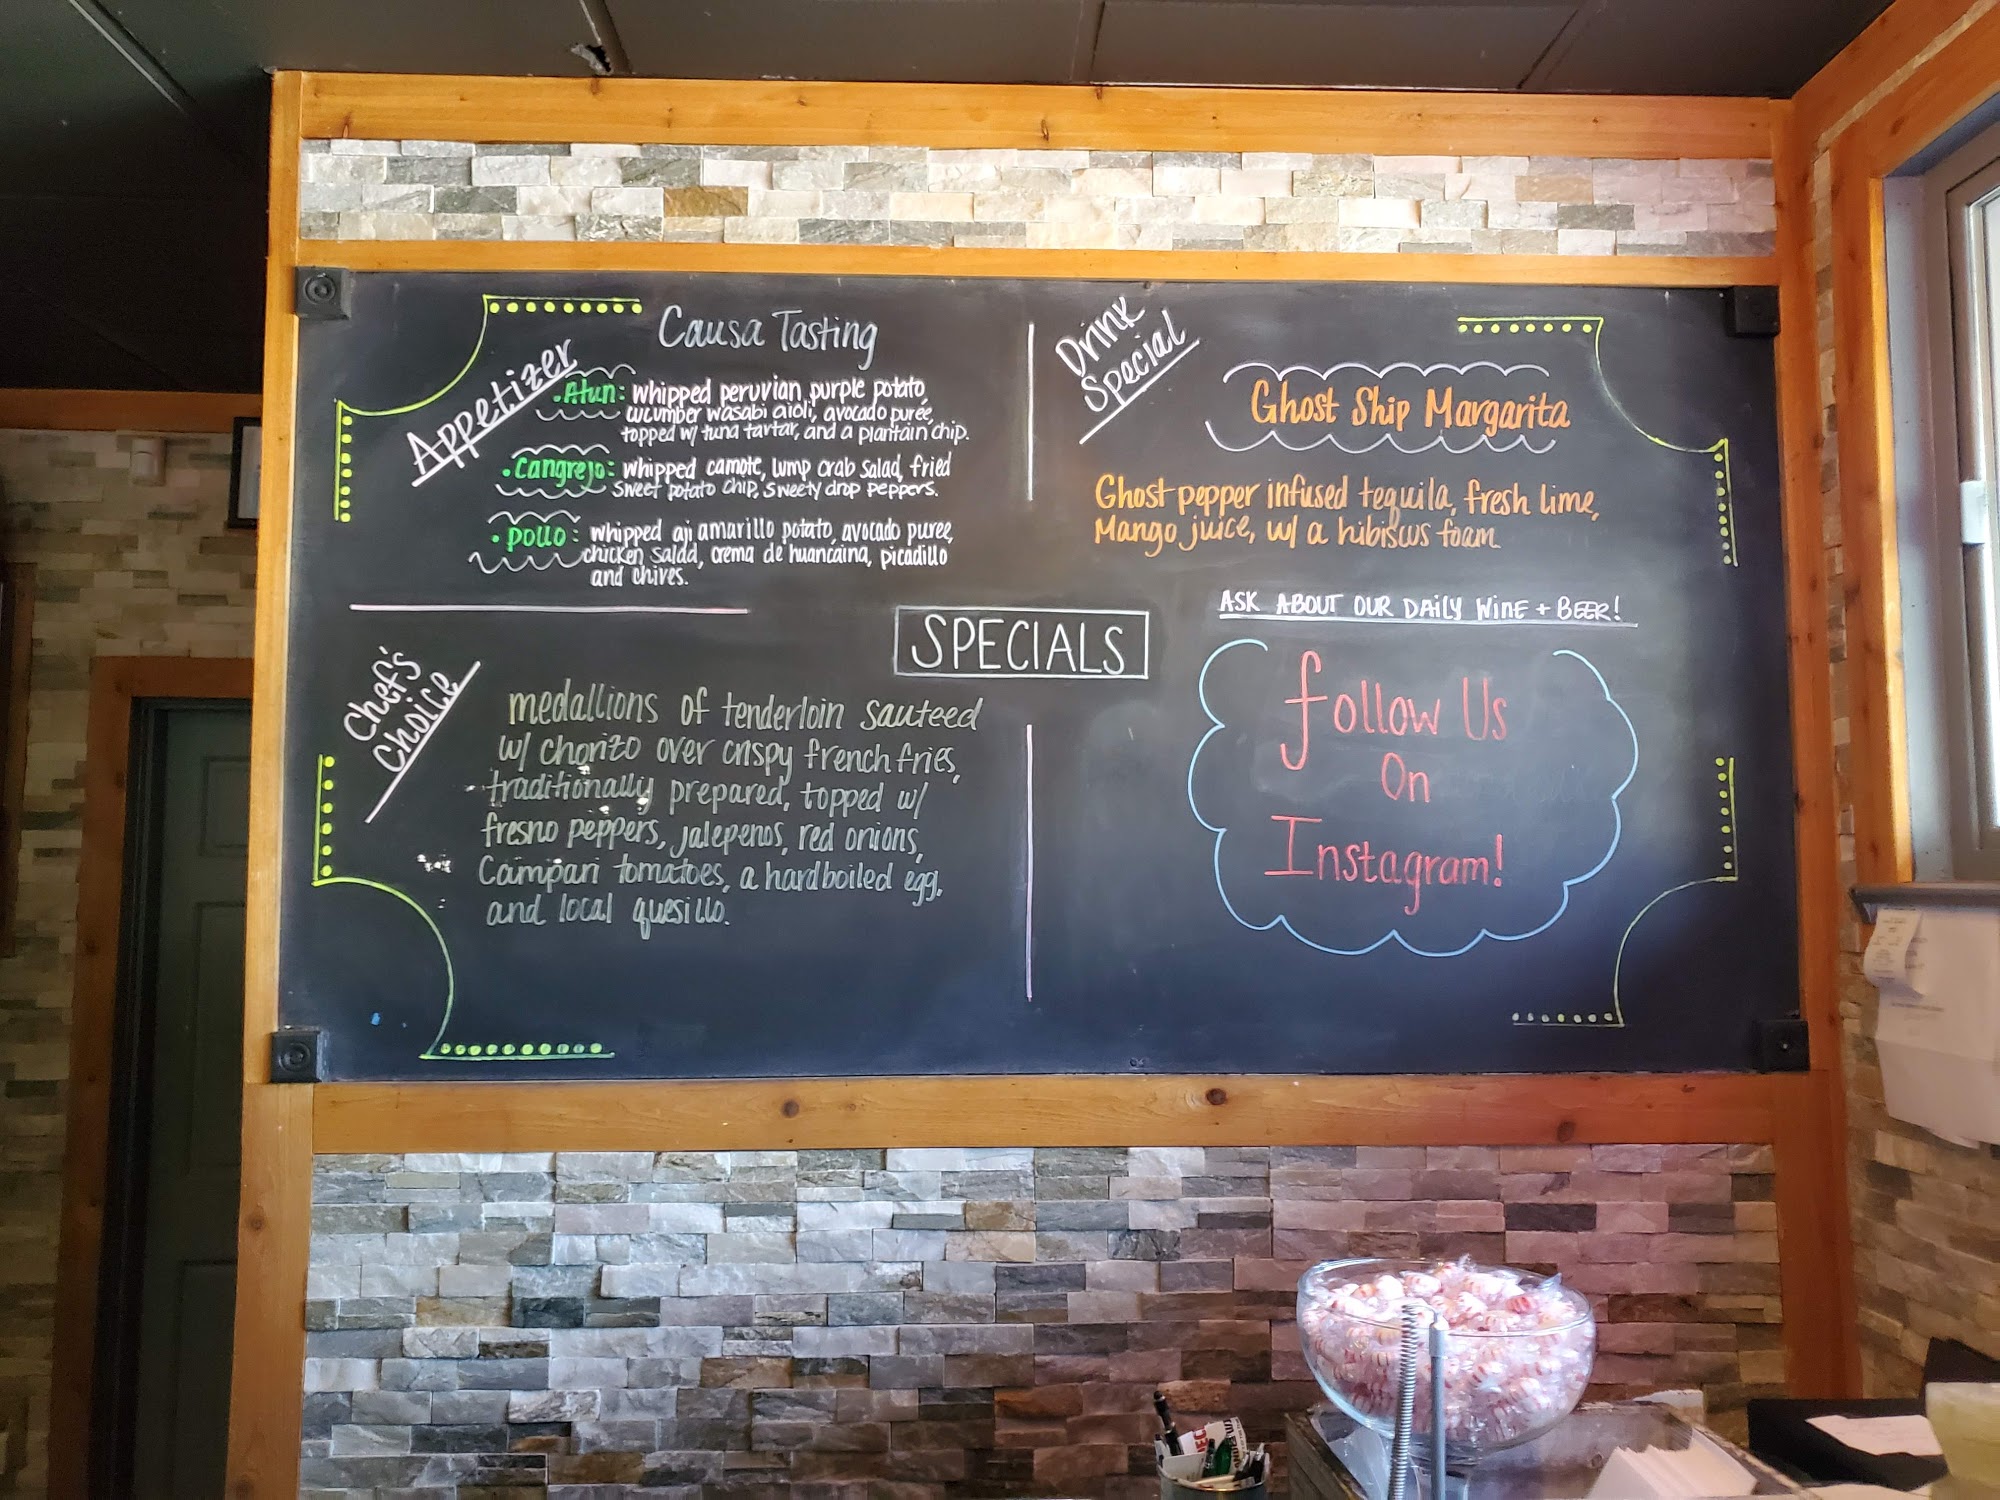 Appetizer
Causa Tasting
• Atun: whipped peruvian purple potato,
cucumber wasabi aioli, avocado puree,
topped w/ tuna tartar, and a plantain chip.
• Cangrejo: whipped camote, lump crab salad, fried
sweet potato chip, sweety drop peppers.
• Pollo: whipped aji amarillo potato, avocado puree,
chicken salad, crema de huancaina, picadillo
and chives.
Drink
Special
Ghost Ship Margarita
Ghost pepper infused tequila, fresh lime,
Mango juice, w/ a hibiscus foam
ASK ABOUT OUR DAILY WINE + BEER!
SPECIALS
Chef's
Choice
medallions of tenderloin sauteed
w/ chorizo over crispy french fries,
traditionally prepared, topped w/
fresno peppers, jalepenos, red onions,
Campari tomatoes, a hardboiled egg,
and local quesillo.
follow Us
On
Instagram!